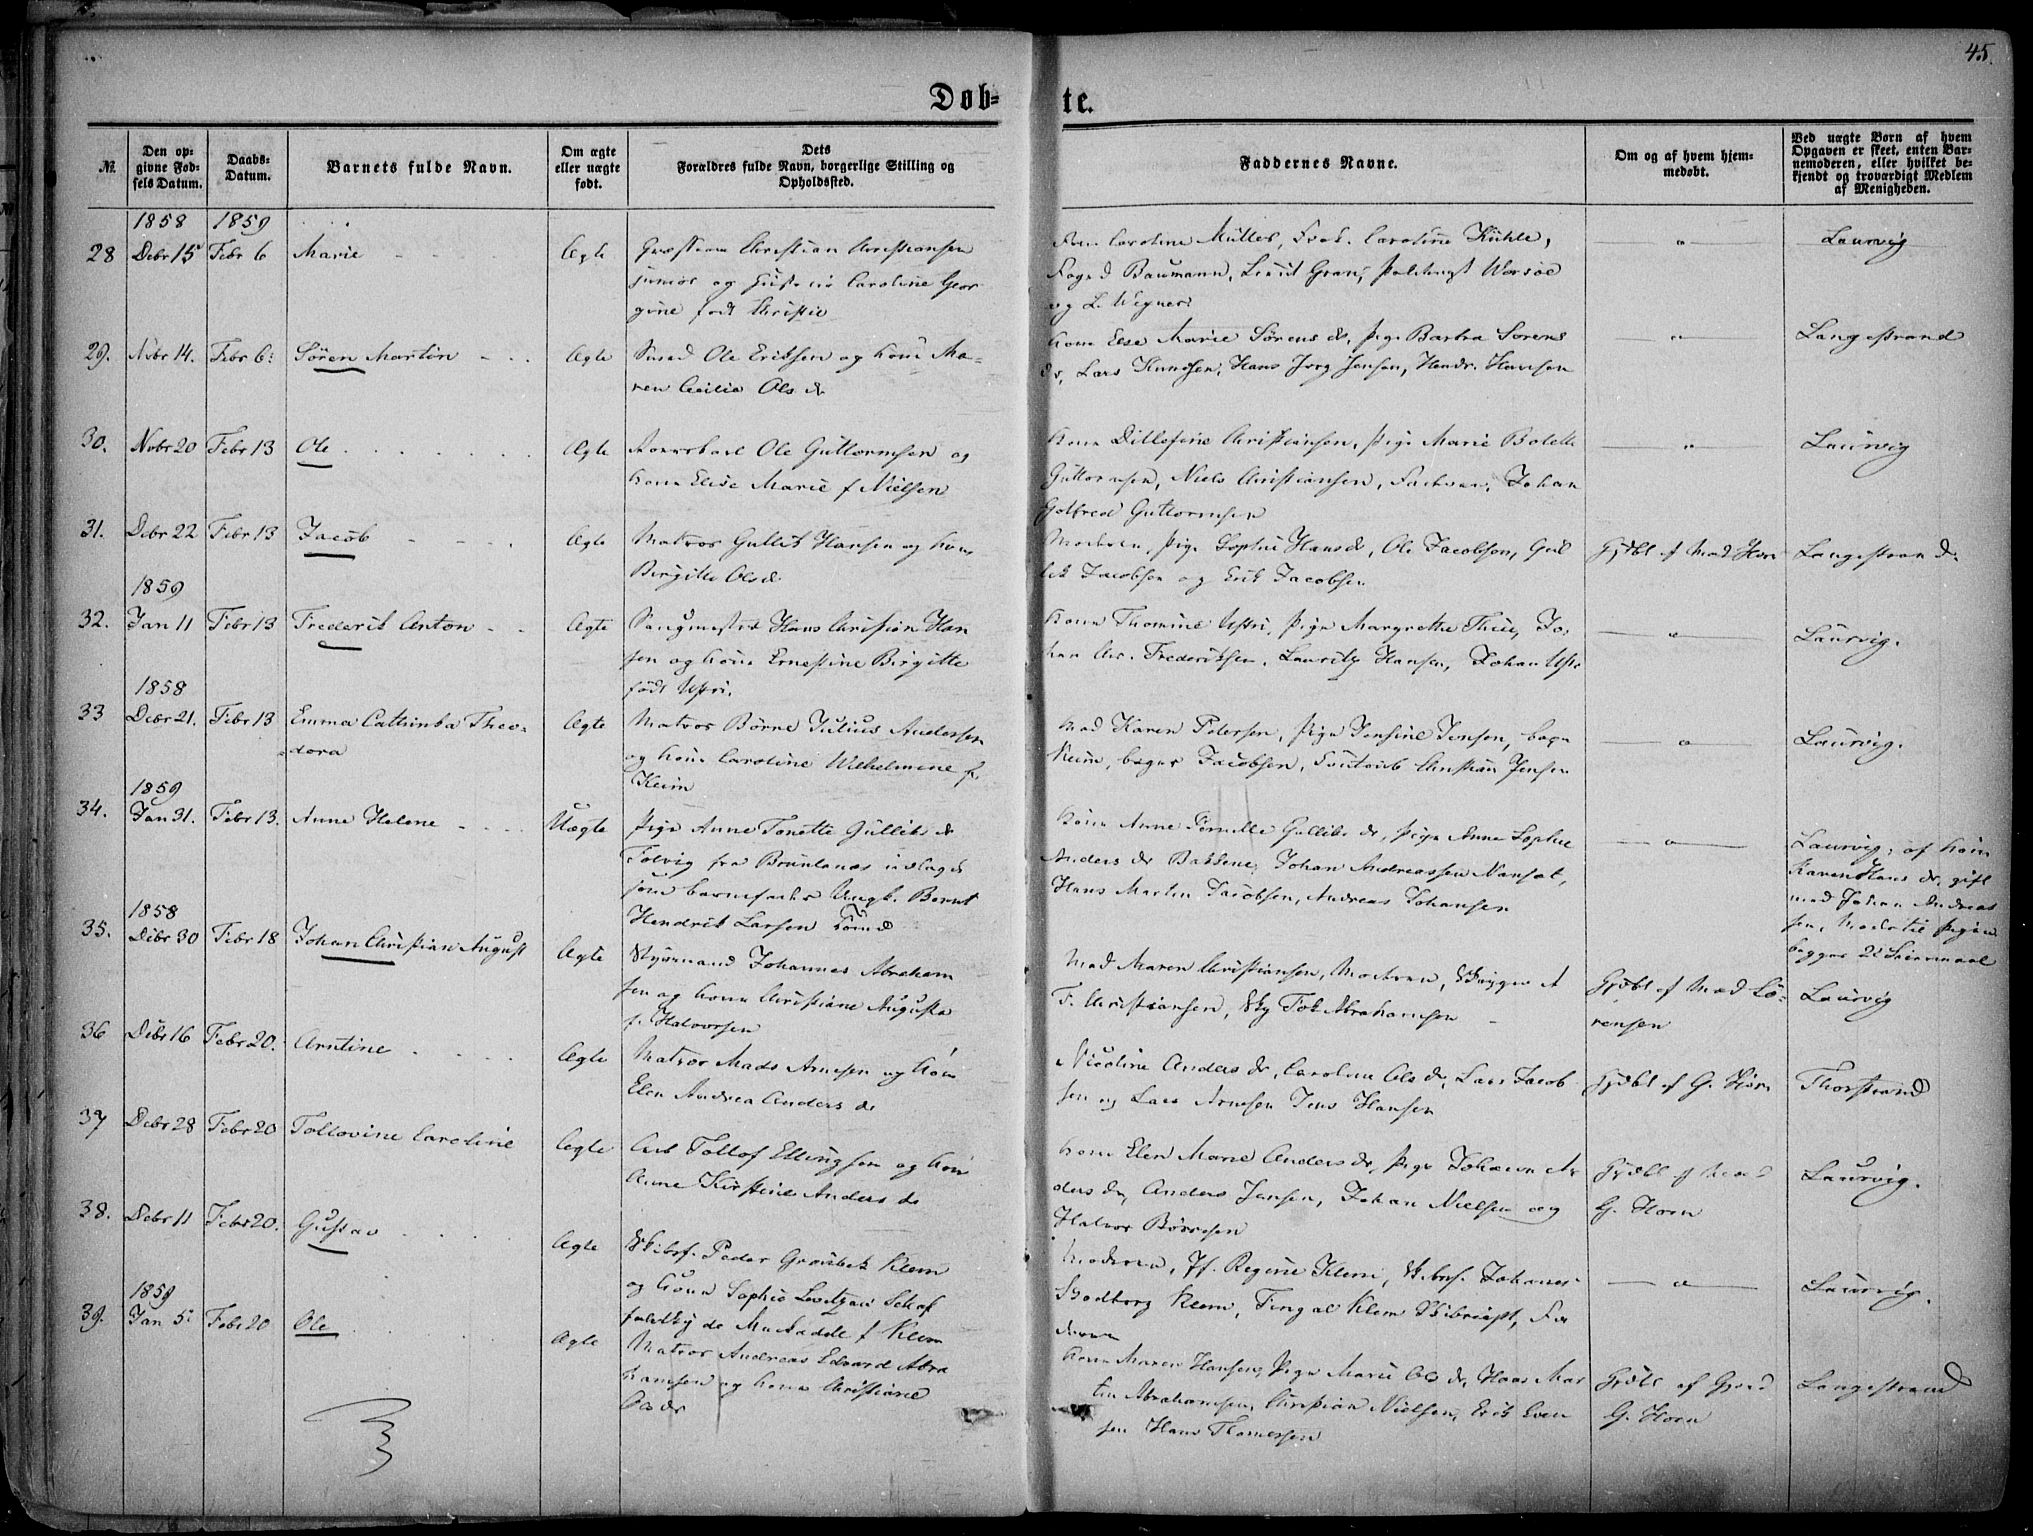 45.
Døb=
te.
№.
Den op=
givne Fød=
sels Datum.
Daabs=
Datum.
Barnets fulde Navn.
Om ægte
eller uægte
født.
Dets
Forældres fulde Navn, borgerlige Stilling og
Opholdssted.
Faddernes Navne.
Om og af hvem hjem=
medøbt.
Ved uægte Børn af hvem
Opgaven er skeet, enten Bar=
nemoderen, eller hvilket be=
kjendt og troværdigt Medlem
af Menigheden.
1858 1859
28 Debr 15 Febr 6 Marie Ægte Christian Christiansen
junior og Caroline Geor
gine født Christie
Caroline Müller, Caroline Kühle,
Foged Baumann, Gran, Worsøe
og L. Wegner
Laurvig
29. Nvbr 14. Febr 6. Søren Martin Ægte Smed Ole Eriksen og Ma=
ren Cecilia Ols d
Else Marie Sørens dr, Pige Barbra Sørens
dr, Lars Knudsen, Hans Jørg Jensen, Hendr. Hansen
Langestrand
30. Novbr 20 Febr 13 Ole Ægte Ole Guttormsen og
Kone Elise Marie f Nielsen
Kone Ditlefine Christiansen, Pige Marie Bolette
Guttormsen, Niels Christiansen, Faderen, Johan
Gotfred Guttormsen
Laurvig
31. Debr 22 Febr 13 Jacob Ægte Matros Gullik Hansen og Kone
Birgitte Olsd
Moderen, Pige Sophie Hansd, Ole Jacobsen, Gul
lik Jacobsen og Erik Jacobsen
Hjdbt af Mad Horn
Langestrand.
1859
32. Jan 11 Febr 13 Frederik Anton Ægte Hans Christian Han
sen og Kone Ernestine Birgitte
født
Kone Thomine Pige Margrethe Jo
han Chr. Frederiksen, Lauritz Hansen, Johan
Laurvig.
1858
33 Debr 21. Febr 13 Emma Cathinka Theo=
dora
Ægte Matros Børre Julius Andersen
og Kone Caroline Wilhelmine f.
Keim
Mad Karen Petersen, Pige Jensine Jensen,
Keim, Jacobsen, Christian Jensen
Laurvig.
1859
34. Jan 31. Febr 13. Anne Helene Uægte Pige Anne Tonette Gulliks d
fra Brunlanæs udlagt
som barnefader Ungk. Bernt
Hendrik Larsen
Kone Anne Pernille Gulliks dr, Pige Anne Sophie
Anders dr Bakkene, Johan Andreassen Nanset,
Hans Martin Jacobsen, Andreas Johansen
Laurvig, af Kone
Karen Hans dr, gift
med Johan Andreas
sen, Moder til Pigen
begges 2t Leiermaal
1858
35. Debr 30 Febr 18 Johan Christian August Ægte Styrmand Johannes Abraham
sen og Kone Christiane Augusta
f. Halvorsen
Mad Maren Christiansen, Moderen,
F. Christiansen, Abrahamsen
Hjdbt af Mad Lo=
rensen
Laurvig
36 Debr 16 Febr 20. Arntine Ægte Matros Mads Arnesen og Kone
Elen Andrea Anders dr
Nicoline Anders dr, Caroline Ols dr, Lars Jacob
sen og Lars Arnesen Jens Hansen
Hjdbt af G. Horn
Thorstrand
37 Debr 28 Febr 20 Tollovine Caroline Ægte Arb Tollof Ellingsen og Kone
Anne Kirstine Anders dr
Kone Elen Marie Anders dr, Pige Johanne An
ders dr, Anders Jensen, Johan Nielsen og
Halvor Børresen
Hjdbt af Mad
G. Horn
Laurvig.
38. Debr 11 Febr 20. Gustav Ægte Skibsf. Peder Grønbek Klem
og Kone Sophie
de f Klem
Moderen, Jf. Regine Klem, Skibsf. Johannes
Bodborg Klem, Fingal Klem Fa
deren
Laurvig.
1859
39. Jan 5. Febr 20 Ole Ægte Matros Andreas Edvard Abra
hamsen og Kone Christiane
Ols dr
Kone Maren Hansen, Pige Marie Ols dr, Hans Mar
tin Abrahamsen, Christian Nielsen, Erik Even
sen Hans Thomessen
Hjdbt af
G. Horn
Langestrand